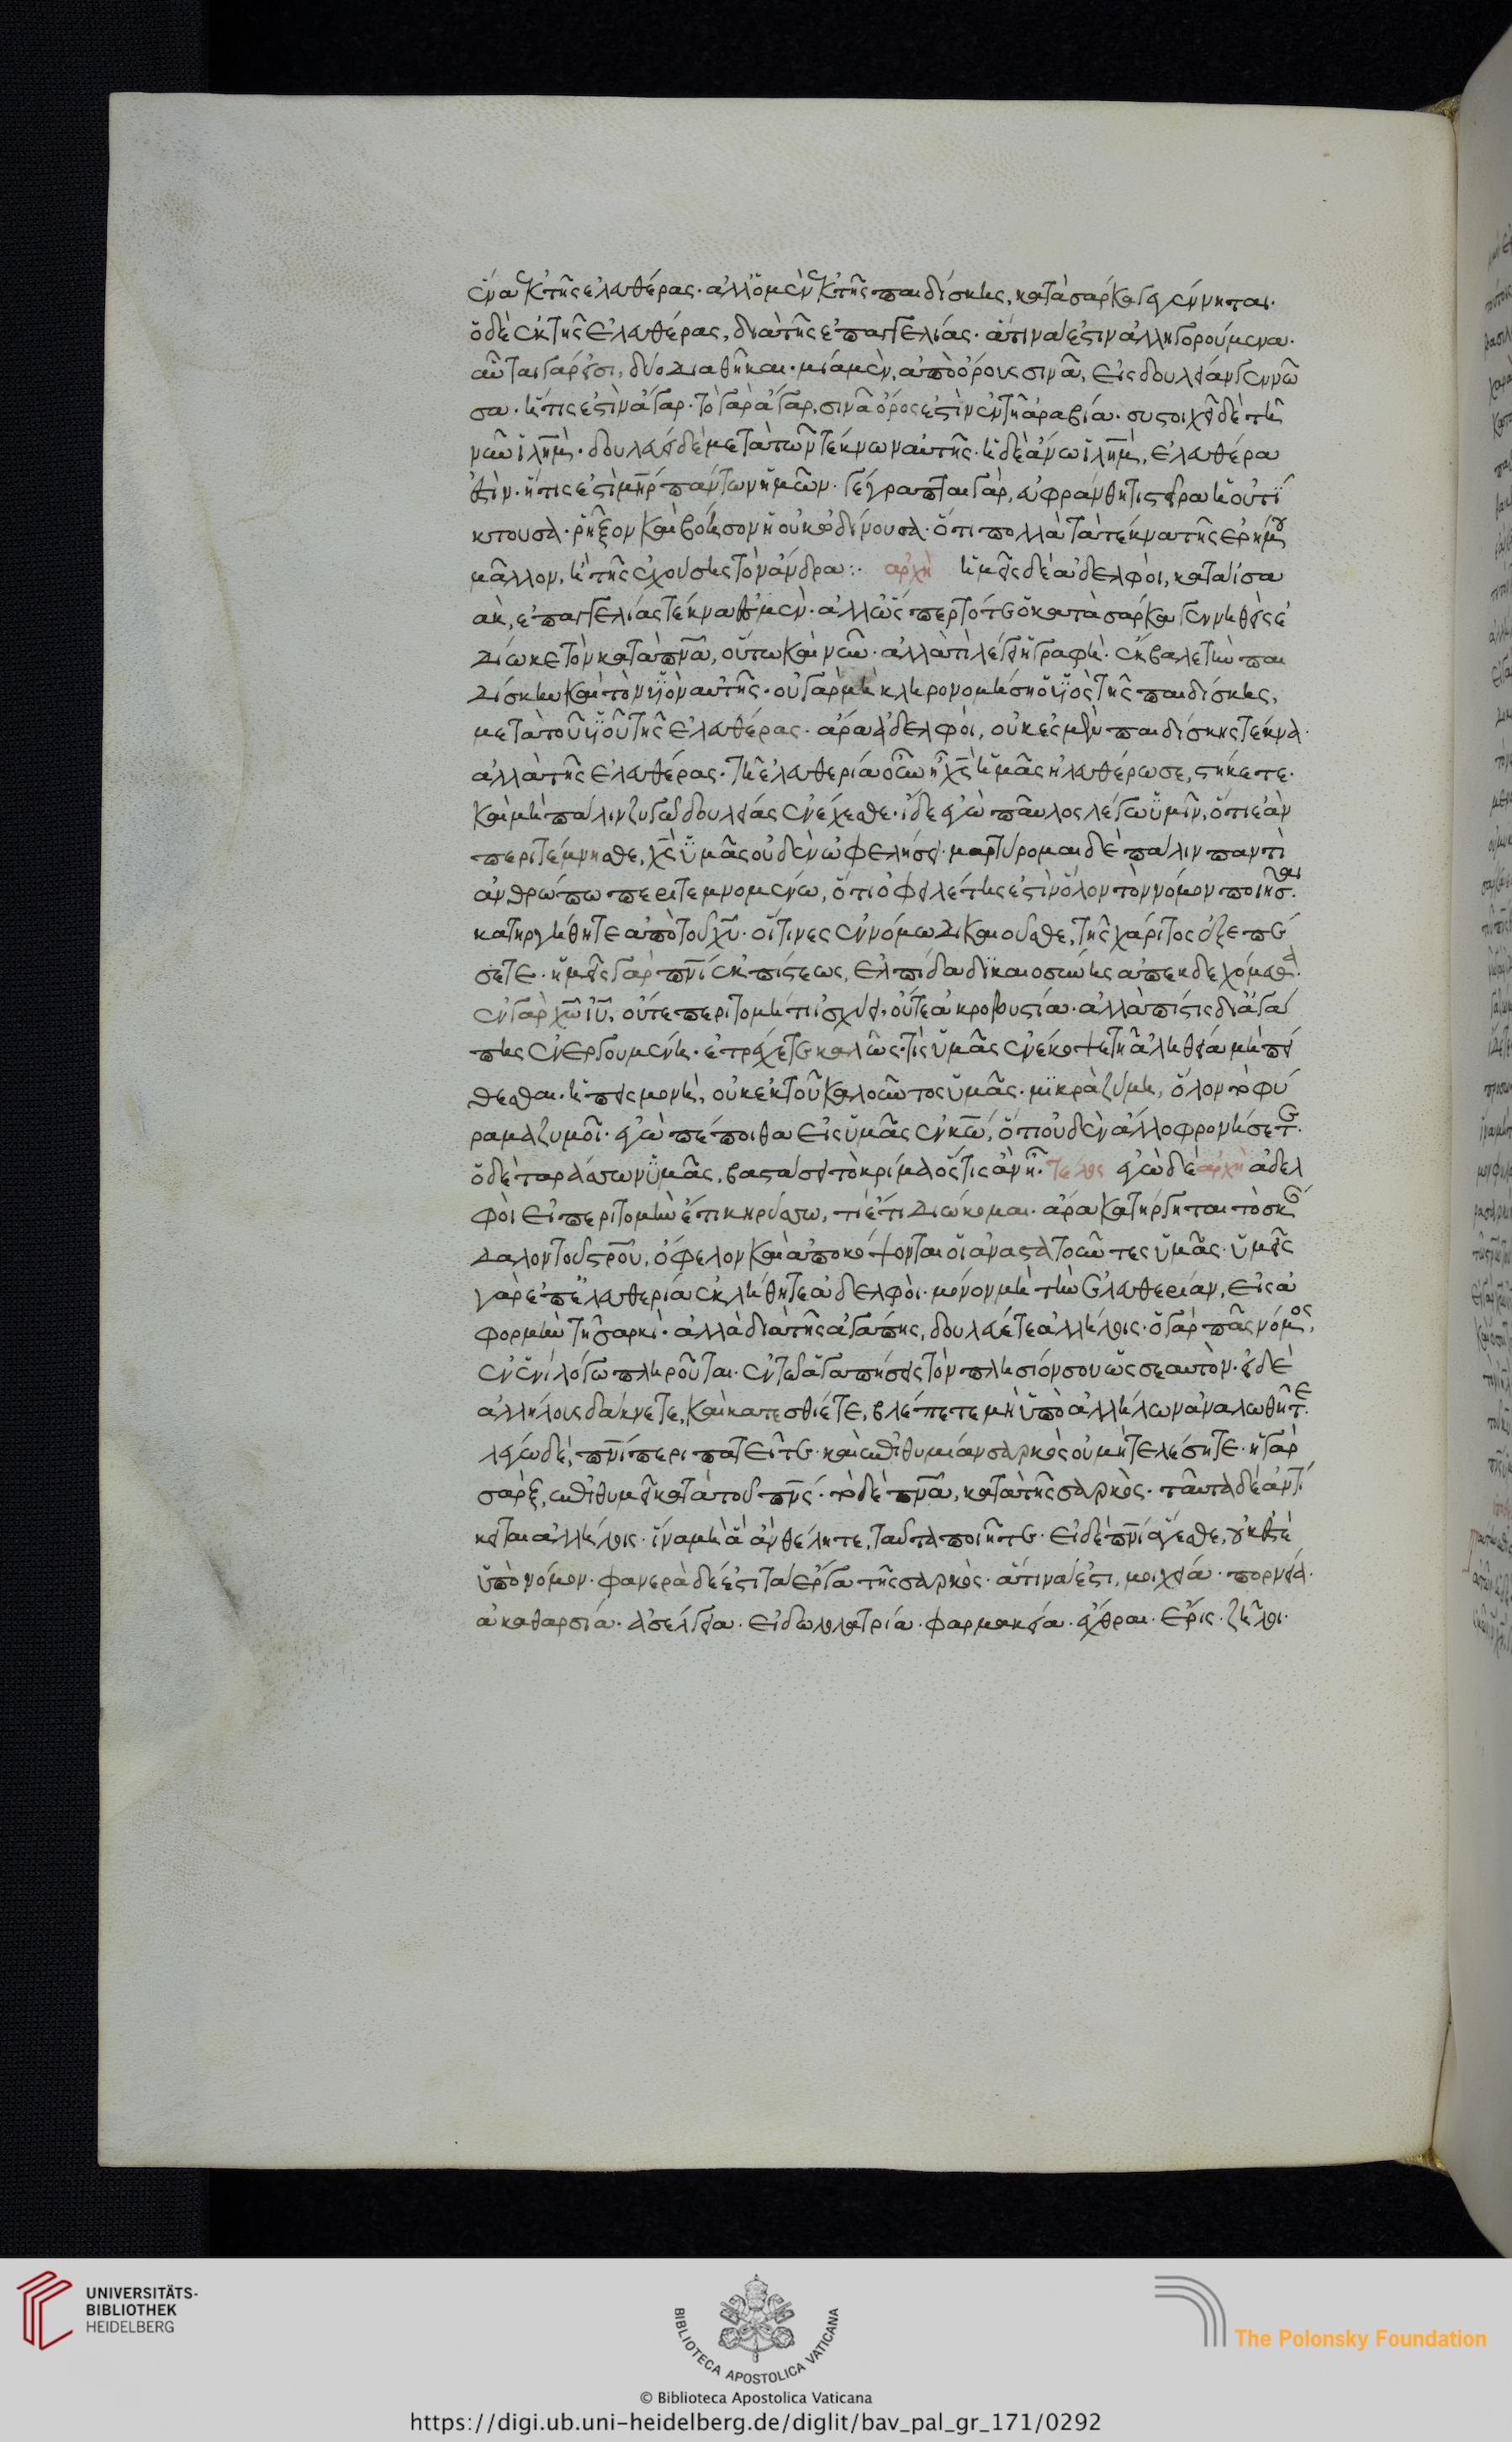 ἕνα ἐκ τῆς ἐλευθέρας· ἀλλ' ὁ μὲν ἐκ τῆς παιδίσκης, κατὰ σάρκα γεγέννηται·
ὁ δὲ ἐκ τῆς ἐλευθέρας, διὰ τῆς ἐπαγγελίας· ἅτινά ἐστιν ἀλληγορούμενα·
αὗται γάρ εἰσι, δύο διαθῆκαι· μία μὲν, ἀπὸ ὄρους σινᾶ, εἰς δουλείαν γεννῶ
σα· ἥτις ἐστὶν ἄγαρ· τὸ γὰρ ἄγαρ, σινᾶ ὄρος ἐστὶν ἐν τῇ ἀραβία· συστοιχεῖ δὲ τῇ
νῦν ἰλῆμ· δουλεύει δὲ μετὰ τῶν τέκνων αὐτῆς· ἡ δὲ ἄνω ἰλῆμ, ἐλευθέρα
ἐστὶν· ἥτις ἐστὶ μηρ πάντων ἡμῶν· γέγραπται γάρ, εὐφράνθητι στεῖρα ἡ οὐ τί
κτουσα· ῥῆξον καὶ βόησον ἡ οὐκ ὠδίνουσα· ὅτι πολλὰ τὰ τέκνα τῆς ἐρήμου
μᾶλλον, ἢ τῆς ἐχούσης τὸν ἄνδρα:· ἀρχὴ ἡμεῖς δὲ ἀδελφοὶ, κατὰ ἰσα
ὰκ, ἐπαγγελίας τέκνα ἐσμέν· ἀλλ' ὥσπερ τότε ὁ κατὰ σάρκα γεννηθεὶς ἐ
δίωκε τὸν κατὰ πνα, οὕτω καὶ νῦν· ἀλλὰ τί λέγει ἡ γραφή· ἔκβαλε τὴν παι
δίσκην καὶ τὸν υἱὸν αὐτῆς· οὐ γὰρ μὴ κληρονομήση ὁ υἱὸς τῆς παιδίσκης,
μετὰ τοῦ υἱοῦ τῆς ἐλευθέρας· ἄρα ἀδελφοὶ, οὐκ ἐσμὲν παιδίσκης τέκνα·
ἀλλὰ τῆς ἐλευθέρας· τῇ ἐλευθερία οὖν ᾗ χς ἡμᾶς ἠλευθέρωσε, στήκετε·
καὶ μὴ πάλιν ζυγῶ δουλείας ἐνέχεσθε· ἴδε ἐγὼ παῦλος λέγω ὑμῖν, ὅτι ἐὰν
περιτέμνησθε, χς ὑμᾶς οὐδὲν ὠφελήσει· μαρτύρομαι δὲ πάλιν παντὶ
ἀνθρώπω περιτεμνομένω, ὅτι ὀφειλέτης ἐστὶν ὅλον τὸν νόμον ποιῆσαι·
κατηργήθητε ἀπὸ τοῦ χυ· οἵτινες ἐν νόμω δικαιοῦσθε, τῆς χάριτος ἐξεπέ
σετε· ἡμεῖς γὰρ πνι ἐκ πίστεως, ἐλπίδα δικαιοσύνης ἀπεκδεχόμεθα·
ἐν γὰρ χω ιυ, οὔτε περιτομή τι ἰσχύει, οὔτε ἀκροβυστία· ἀλλὰ πίστις δι' ἀγά
πης ἐνεργουμένη· ἐτρέχετε καλῶς· τίς ὑμᾶς ἐνέκοψε τῇ ἀληθεία μὴ πεί
θεσθαι· ἡ πεισμονὴ, οὐκ ἐκ τοῦ καλοῦντος ὑμᾶς· μικρὰ ζύμη, ὅλον τὸ φύ
ραμα ζυμοῖ· ἐγὼ πέποιθα εἰς ὑμᾶς ἐν κω, ὅτι οὐδὲν ἄλλο φρονήσετε·
ὁ δὲ ταράσσων ὑμᾶς, βαστάσει τὸ κρίμα ὅστις ἂν ᾖ· τέλος ἐγὼ δὲ ἀρχὴ ἀδελ
φοὶ εἰ περιτομὴν ἔτι κηρύσσω, τί ἔτι διώκομαι· ἄρα κατήργηται τὸ σκάν
δαλον τοῦ στρου, ὄφελον καὶ ἀποκόψονται οἱ ἀναστατοῦντες ὑμᾶς· ὑμεῖς
γὰρ ἐπ' ἐλευθερία ἐκλήθητε ἀδελφοὶ· μόνον μὴ τὴν ἐλευθερίαν, εἰς ἀ
φορμὴν τῇ σαρκὶ· ἀλλὰ διὰ τῆς ἀγάπης, δουλεύετε ἀλλήλοις· ὁ γὰρ πᾶς νόμος,
ἐν ἑνὶ λόγω πληροῦται· ἐν τῶ ἀγαπήσεις τὸν πλησίον σου ὡς σεαυτὸν· εἰ δὲ
ἀλλήλους δάκνετε, καὶ κατεσθίετε, βλέπετε μὴ ὑπὸ ἀλλήλων ἀναλωθῆτε·
λέγω δὲ, πνι περιπατεῖτε· καὶ ἐπιθυμίαν σαρκὸς οὐ μὴ τελέσητε· ἡ γὰρ
σὰρξ, ἐπιθυμεῖ κατὰ τοῦ πνς· τὸ δὲ πνα, κατὰ τῆς σαρκὸς· ταῦτα δὲ ἀντί
κειται ἀλλήλοις· ἵνα μὴ ἃ ἂν θέλητε, ταῦτα ποιῆτε· εἰ δὲ πνι ἄγεσθε, οὐκ ἐστὲ
ὑπὸ νόμον· φανερὰ δέ ἐστι τὰ ἔργα τῆς σαρκὸς· ἅτινά ἐστι, μοιχεία· πορνεία·
ἀκαθαρσία· ἀσέλγεια· εἰδωλολατρία· φαρμακεία· ἔχθραι· ἔρις· ζῆλοι·
UNIVERSITÄTS-
BIBLIOTHEK
HEIDELBERG
BIBLIOTECA APOSTOLICA VATICANA
The Polonsky Foundation
© Biblioteca Apostolica Vaticana
https://digi.ub.uni-heidelberg.de/diglit/bav_pal_gr_171/0292